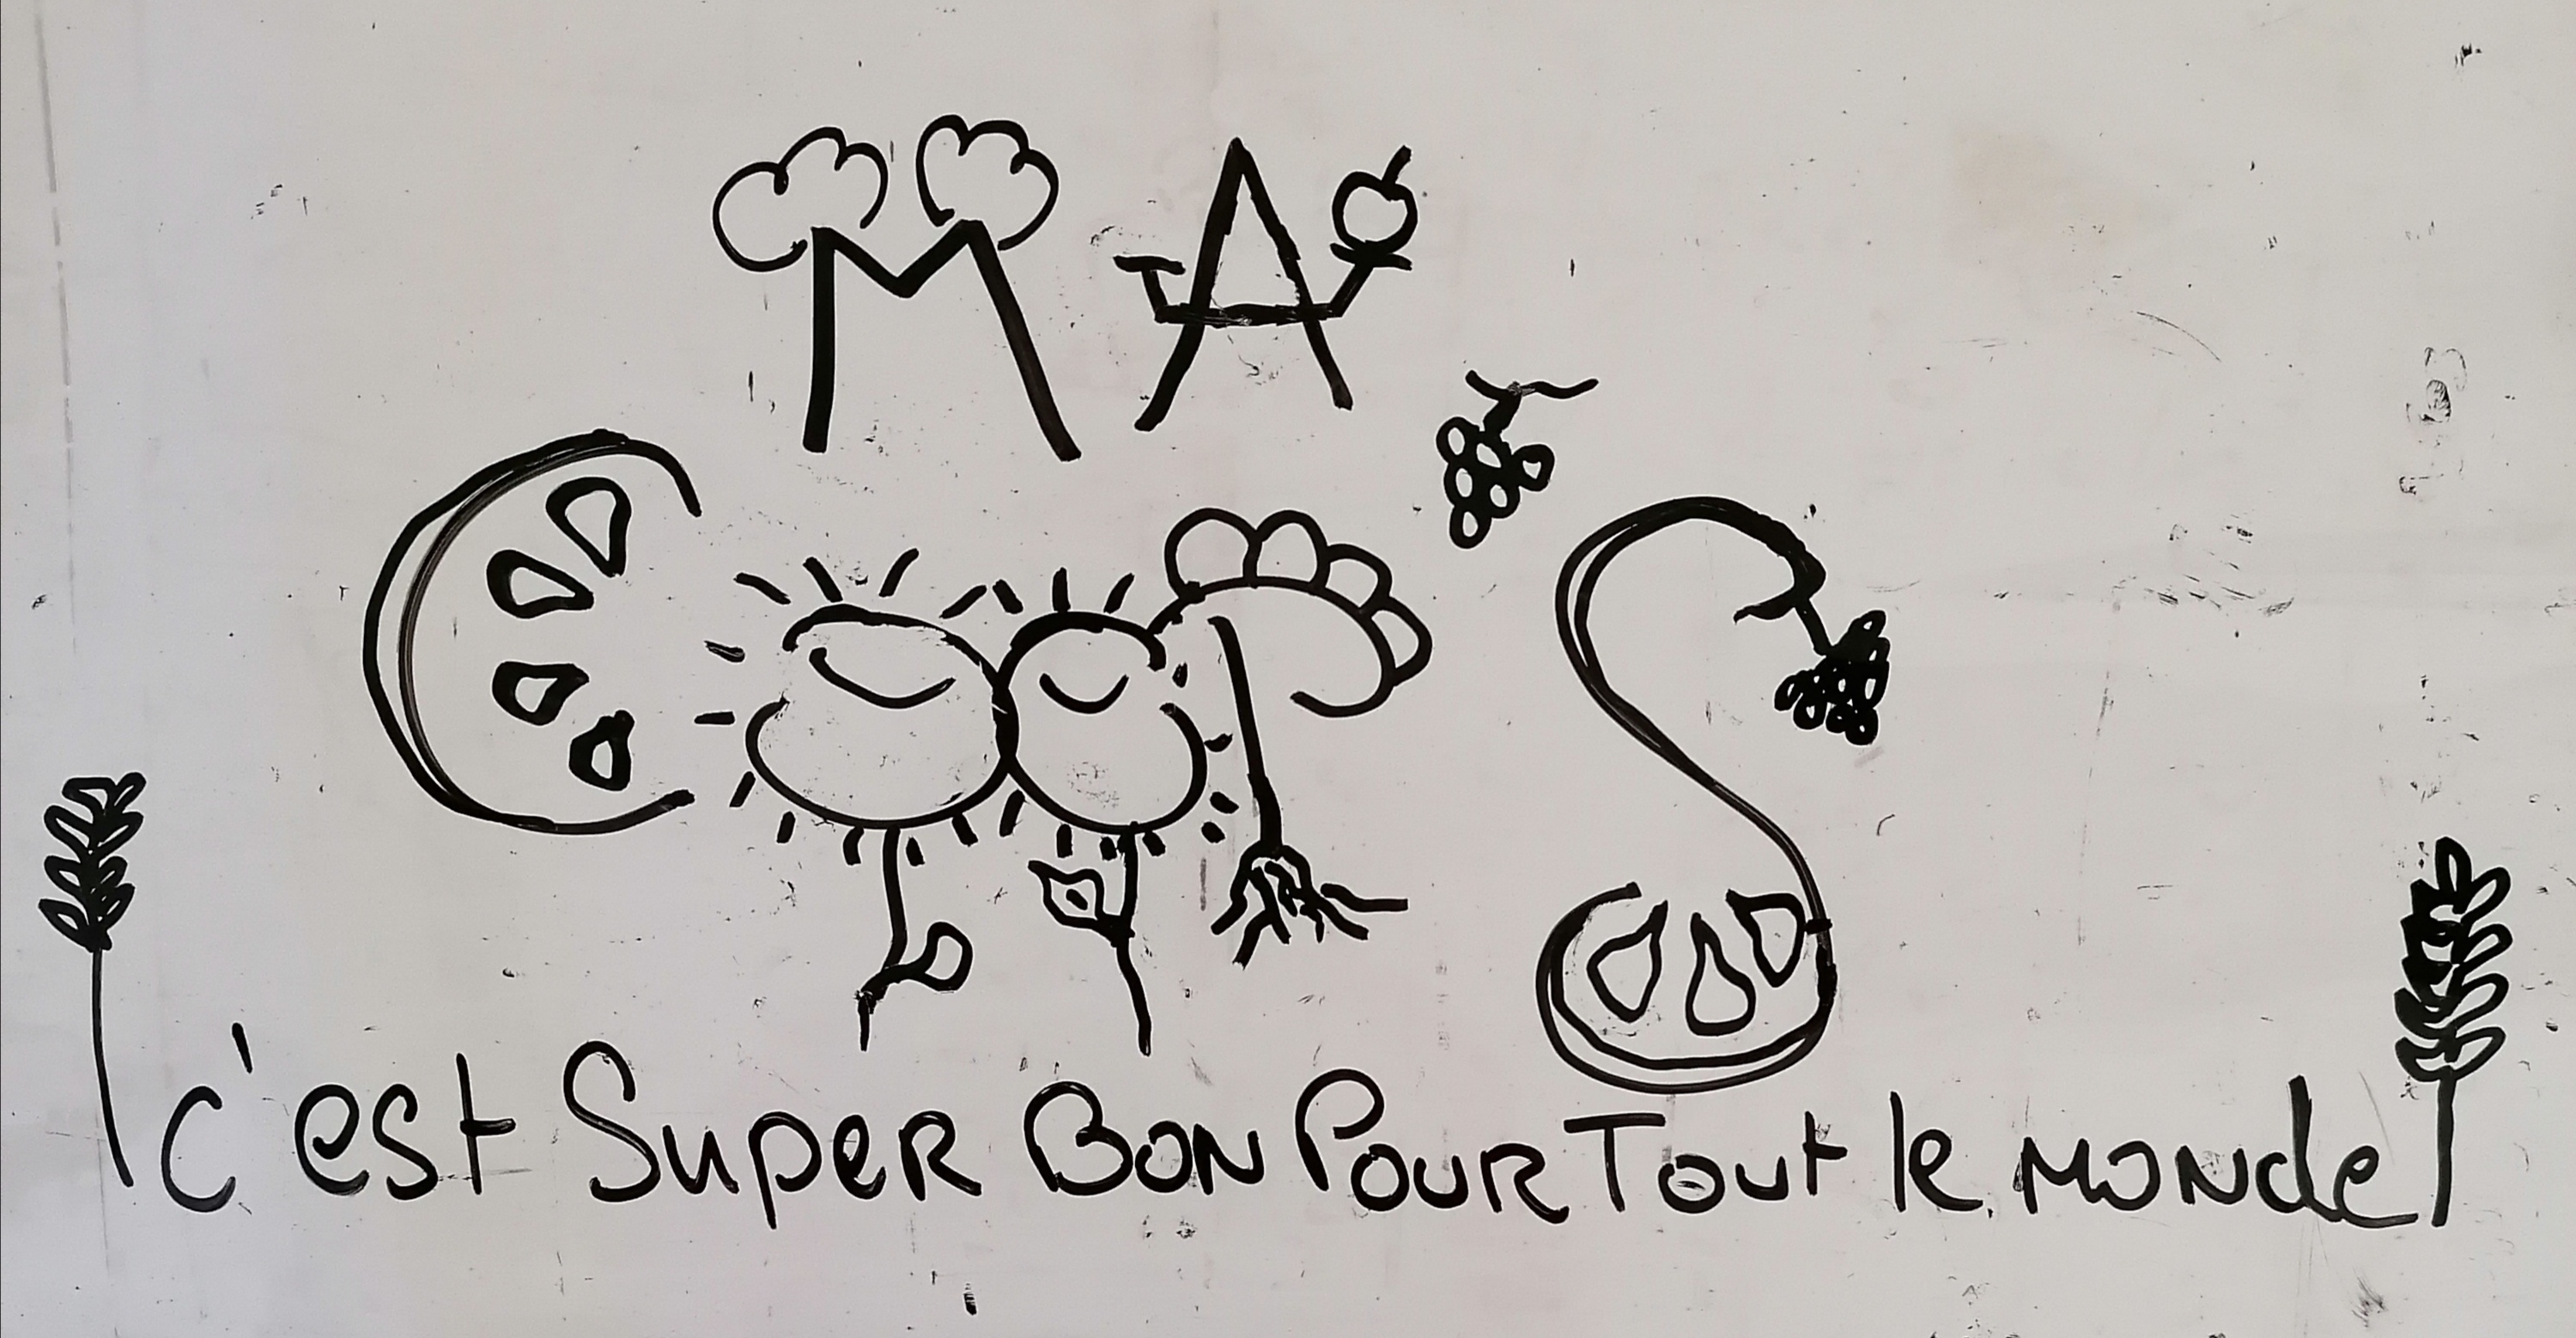 MA
COOP'S
C'est SupeR BON POUR Tout le MONde